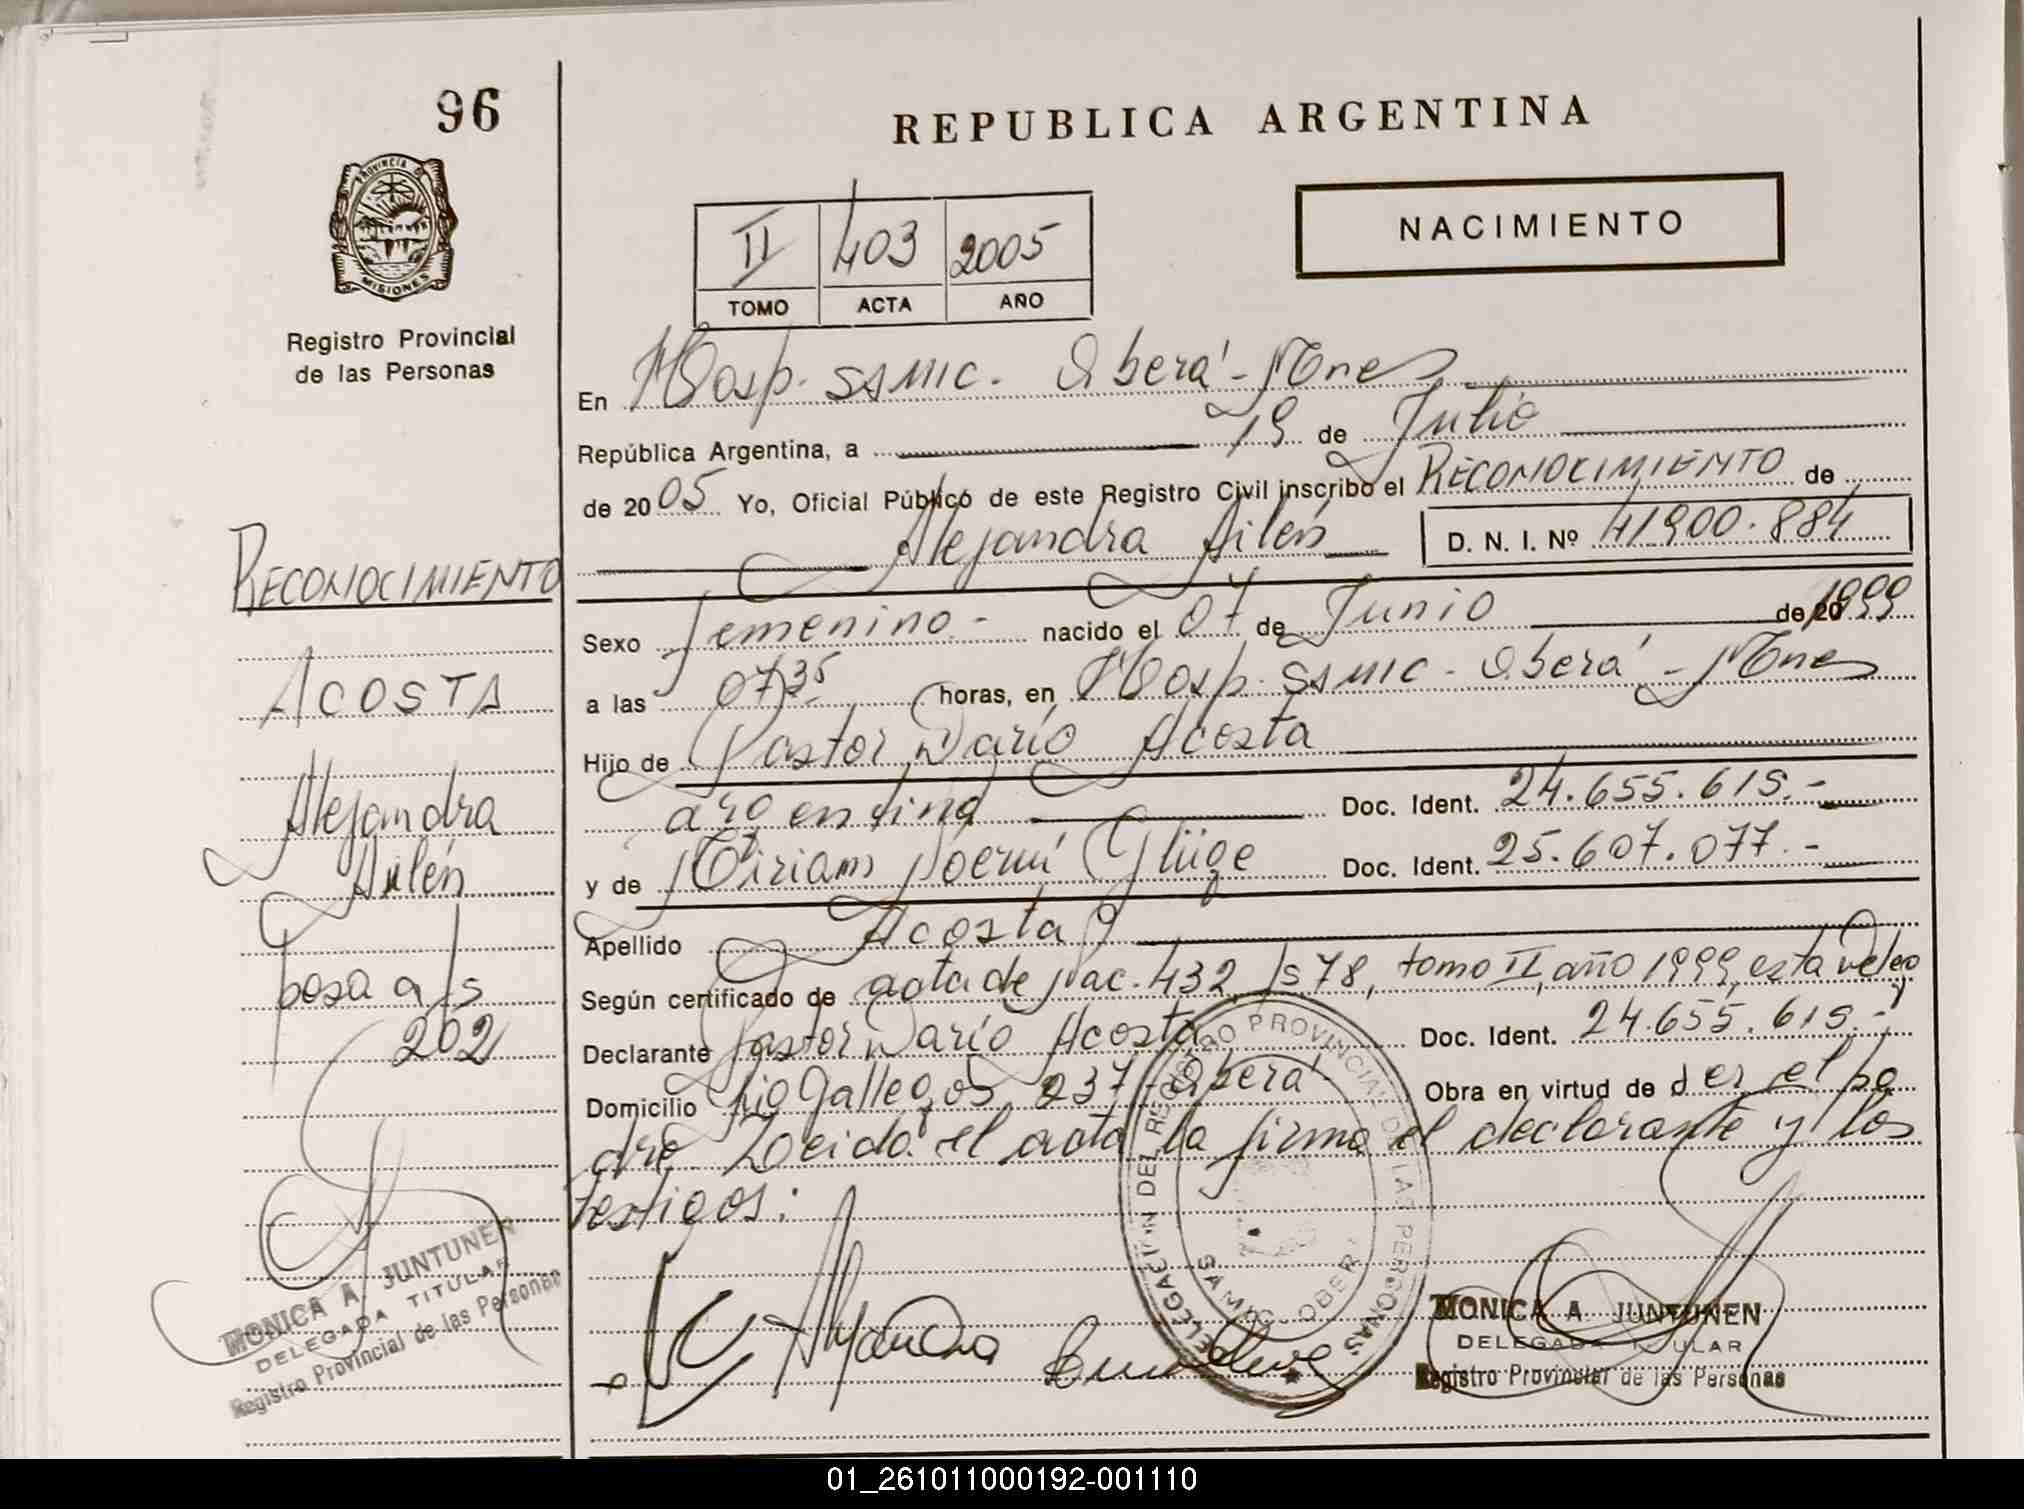 96
REPUBLICA ARGENTINA
PROVINCIA D
MISIONES
Registro Provincial
de las Personas
NACIMIENTO
II 403 2005
TOMO ACTA AÑO
En Hosp. SAMIC. Oberá - Mnes
República Argentina, a 19 de Julio
de 2005 Yo, Oficial Público de este Registro Civil inscribo el RECONOCIMIENTO de
Alejandra Ailén D. N. I. Nº 41900.884
Sexo femenino.- nacido el 07 de Junio de 20 1999
a las 07 35 horas, en Hosp. SAMIC - Oberá - Mnes
Hijo de Pastor Darío Acosta
argentina Doc. Ident. 24.655.619.-
y de Miriam Noemí Glüge Doc. Ident. 25.607.077.-
Apellido Acosta
Según certificado de acta de Nac. 432, Fs 78, tomo II, año 1999, esta Deleg
Declarante Pastor Darío Acosta Doc. Ident. 24.655.619.-
Domicilio Rio Gallegos 237 - Oberá Obra en virtud de ser el pa
dre Leida el acta la firma el declarante y los
testigos:
RECONOCIMIENTO
ACOSTA
Alejandra
Ailén
pasa a fs
202
MONICA A JUNTUNEN
DELEGADA TITULAR
Registro Provincial de las Personas
DELEGACION DEL REGISTRO PROVINCIAL DE LAS PERSONAS
SAMIC OBERA
Alejandra
MONICA A JUNTUNEN
DELEGADA TITULAR
Registro Provincial de las Personas
01_261011000192-001110